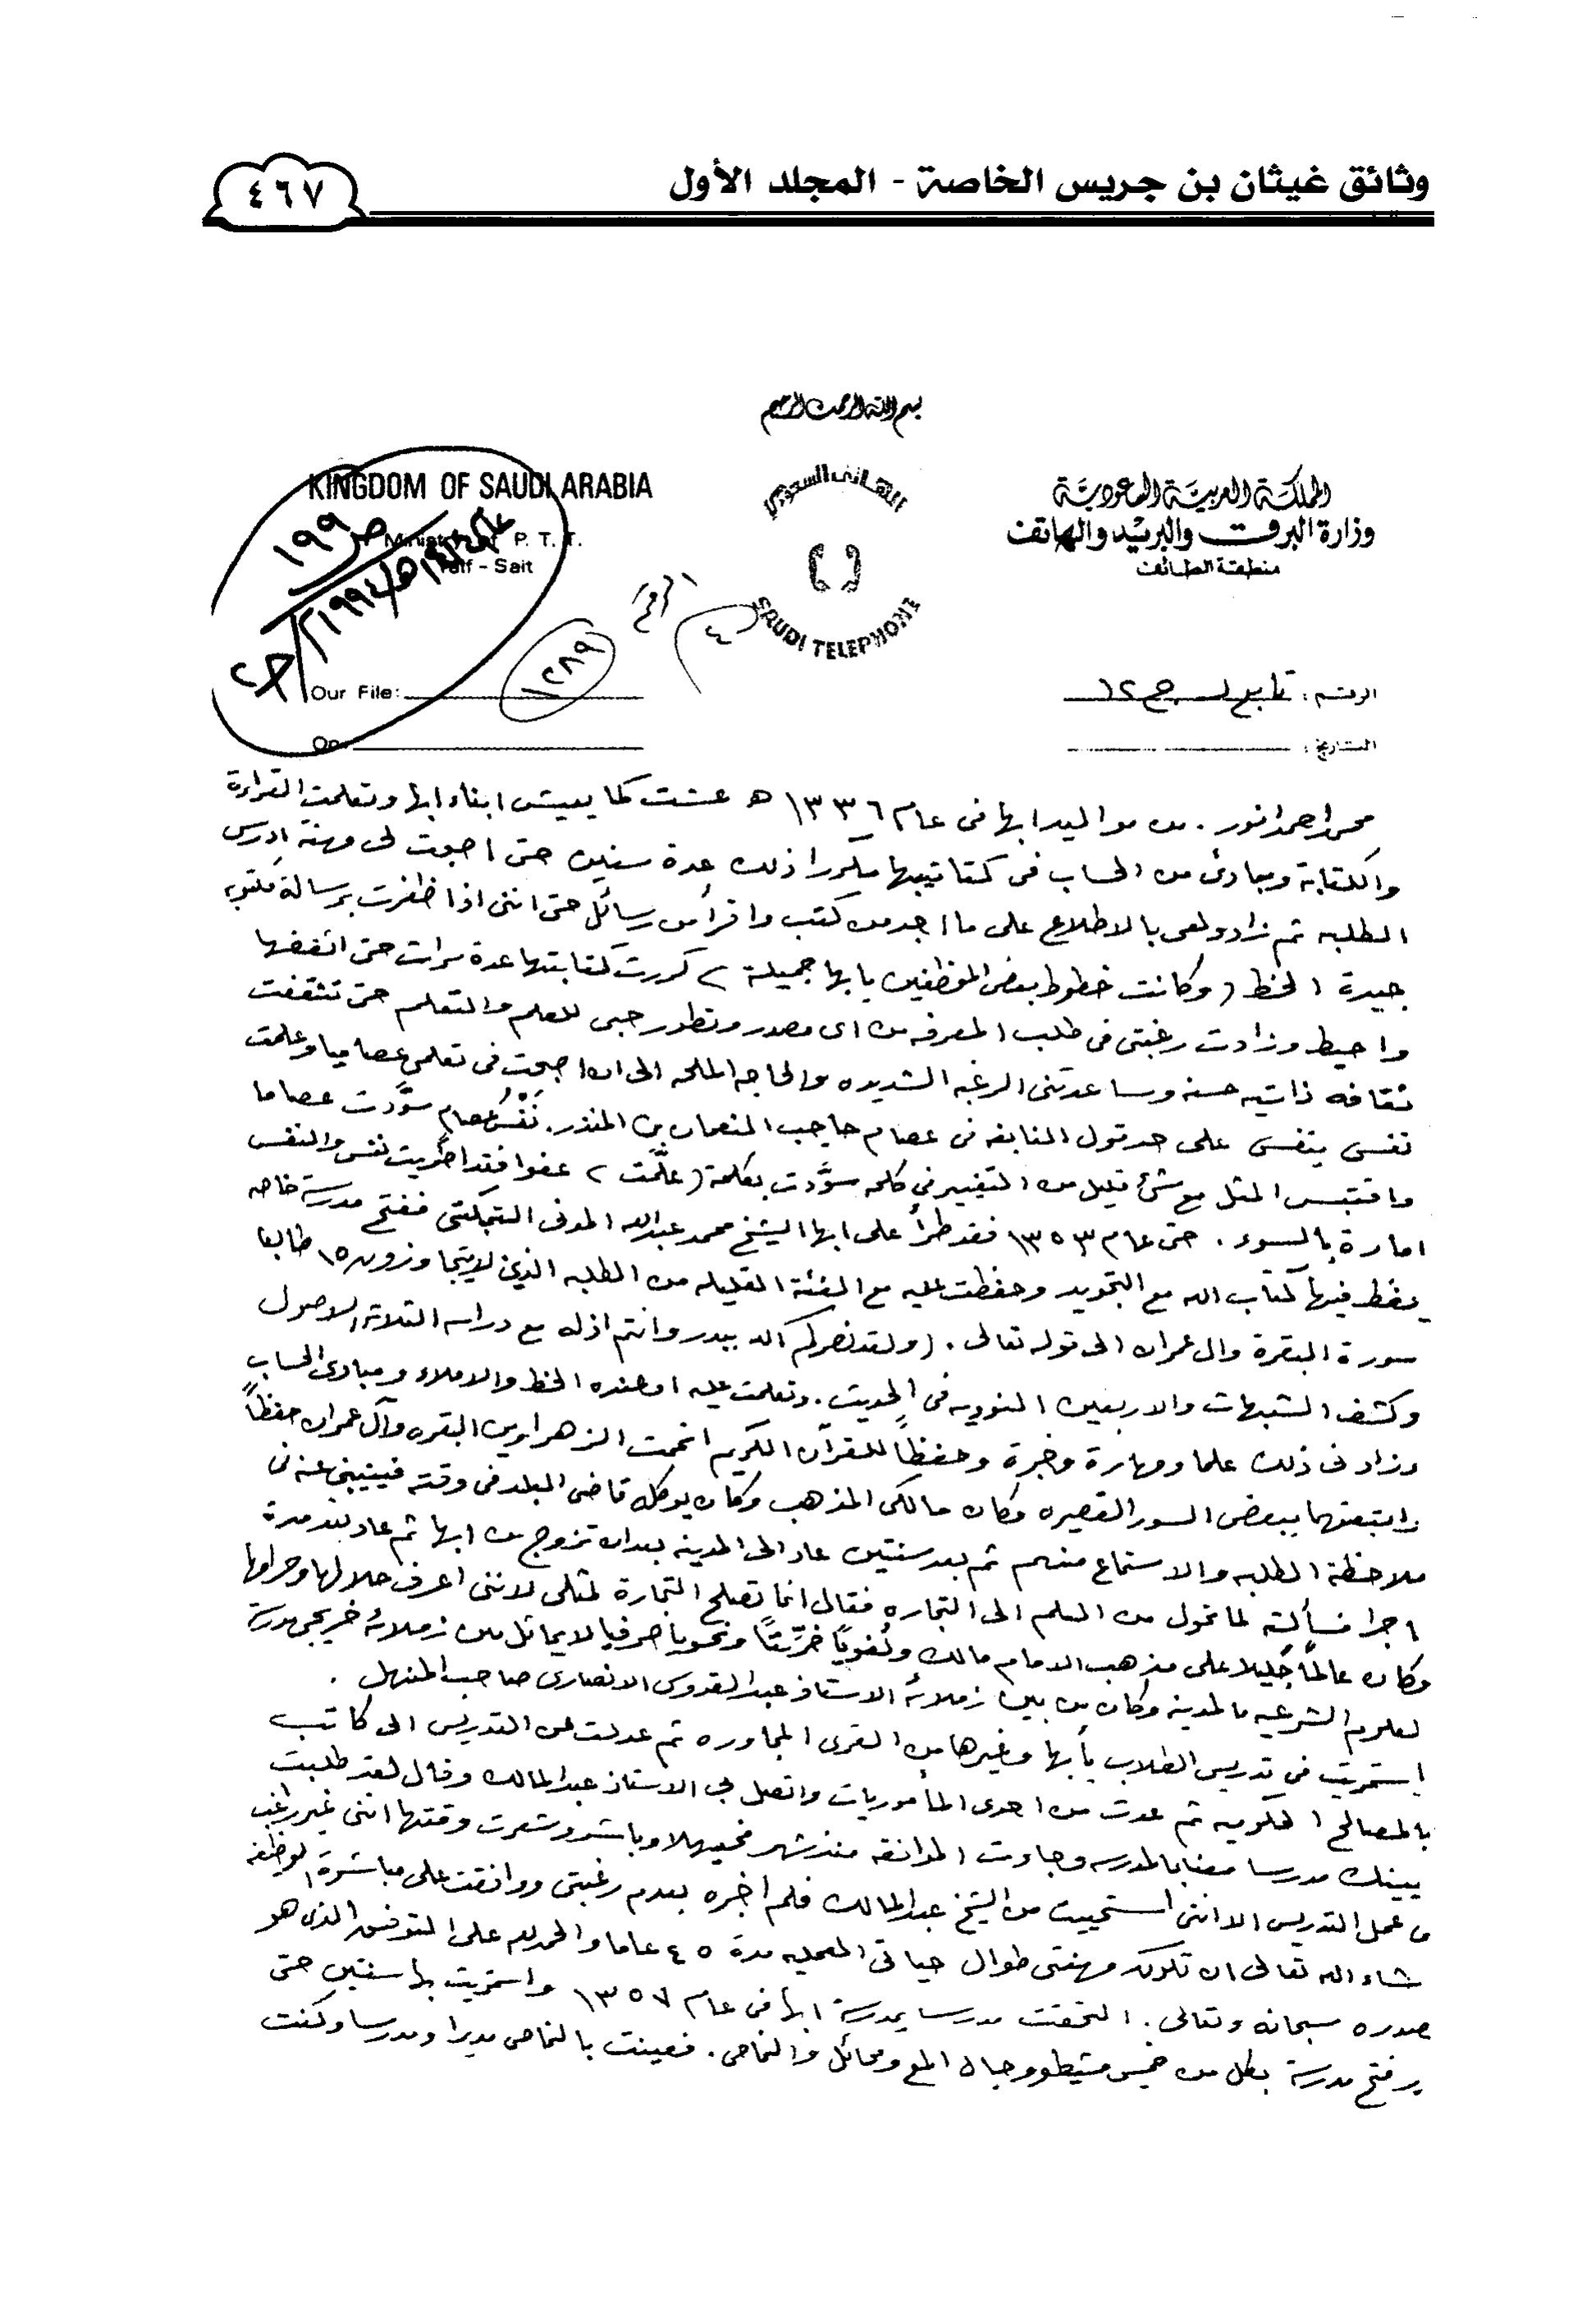 وثائق غيثان بن جريس الخاصة - المجلد الأول
٤٦٧
بسم الله الرحمن الرحيم
المملكة العربية السعودية
وزارة البرق والبريد والهاتف
منطقة الطائف
الهاتف السعودي
SAUDI TELEPHONE
KINGDOM OF SAUDI ARABIA
Ministry of P. T. T.
Taif - Sait
ص ١٩٩
١٢٨٩
٤
الرقم : تابع لـ ج ١٢
Our File:
التاريخ :
On
محمد احمد انور . من مواليد ابها فى عام ١٣٣٦ هـ عشت كما يعيش ابناء ابها وتعلمت القراءة
والكتابة ومبادئ من الحساب فى كتاتيبها مكررا ذلك عدة سنين حتى اصبحت لى مهنة ادرس
الطلبه ثم زاد ولعى بالاطلاع على ما اجد من كتب واقرأ من رسائل حتى اننى اذا ظفرت برسالة مكتوبه
جيدة الخط ( وكانت خطوط بعض الموظفين بابها جميلة ) كررت كتابتها عدة مرات حتى اتقفها
واحيط وزادت رغبتى فى طلب المعرفه من اى مصدر وتطور حبى للعلم والتعلم حتى تثقفت
ثقافه ذاتيه حسنه وساعدتنى الرغبه الشديده والحاجه الملحه الى ان اصبحت فى تعلمى عصاميا وعلمت
نفسى بنفسى على حد قول النابغه فى عصام حاجب النعمان بن المنذر . نَفْسُ عصام سوَّدت عصاما
واقتبس المثل مع شئ قليل من التغيير في كلمه سوَّدت بكلمة ( علَّمت ) عفوا فقد اطريت نفسى والنفس
امارة بالسوء . حتى عام ١٣٥٣ فقد طرأ على ابها الشيخ محمد عبدالله المدنى التنبكتى ففتح مدرسة خاصه
يحفظ فيها كتاب الله مع التجويد وحفظت عليه مع الفئة القليله من الطلبه الذين لا يتجاوزون ١٥ طالبا
سورة البقرة وال عمران الى قوله تعالى . ( ولقد نصركم الله ببدر وانتم اذله مع دراسه الثلاثة الاصول
وكشف الشبهات والاربعين النوويه فى الحديث . وتعلمت عليه او عنده الخط والاملاء ومبادئ الحساب
وزاد فى ذلك علما ومهارة وخبرة وحفظاً للقرآن الكريم اتممت الزهراوين البقره وآل عمران حفظاً
واتبعتهما ببعض السور القصيره وكان مالكى المذهب وكان يوكل قاضى البلد فى وقته فينيبنى عنه فى
ملاحظة الطلبه والاستماع منهم ثم بعد سنتين عاد الى المدينه بعد ان تزوج من ابها ثم عاد بعد مدة
اجرا فسألته لما تحول من العلم الى التجاره فقال انما تصلح التجارة لمثلى لاننى اعرف حلالها وحرامها
وكان عالماً جليلا على مذهب الامام مالك ولغوياً خرِّيتاً ونحويا صرفيا لا يماثل من زملائه خريجى مدرسة
لعلوم الشرعيه بالمدينه وكان من بين زملائه الاستاذ عبدالقدوس الانصارى صاحب المنهل .
استمريت فى تدريس الطلاب بأبها وغيرها من القرى المجاوره ثم عدلت عن التدريس الى كاتب
بالمصالح الحكوميه ثم عدت من احدى المأموريات واتصل بى الاستاذ عبدالمالك وقال لقد طلبت
يعينك مدرسا معنا بالمدرسه وجاءت الموافقه منذ شهر فحيهلا وباشر وشعرت وقتها اننى غير راغب
فى عمل التدريس الا اننى استحييت من الشيخ عبدالمالك فلم اخبره بعدم رغبتى ووافقت على مباشرة الوظيفه
شاء الله تعالى ان تكون مهنتى طوال حياتى العمليه مدة ٤٥ عاما والحمدلله على التوفيق الذى هو
صدره سبحانه وتعالى . التحقت مدرسا بمدرسة ابها فى عام ١٣٥٧ واستمريت بها سنتين حتى
ر فتح مدرسة بكل من خميس مشيط ورجال المع ومحائل والنماص . فعينت بالنماص مديرا ومدرسا وكنت